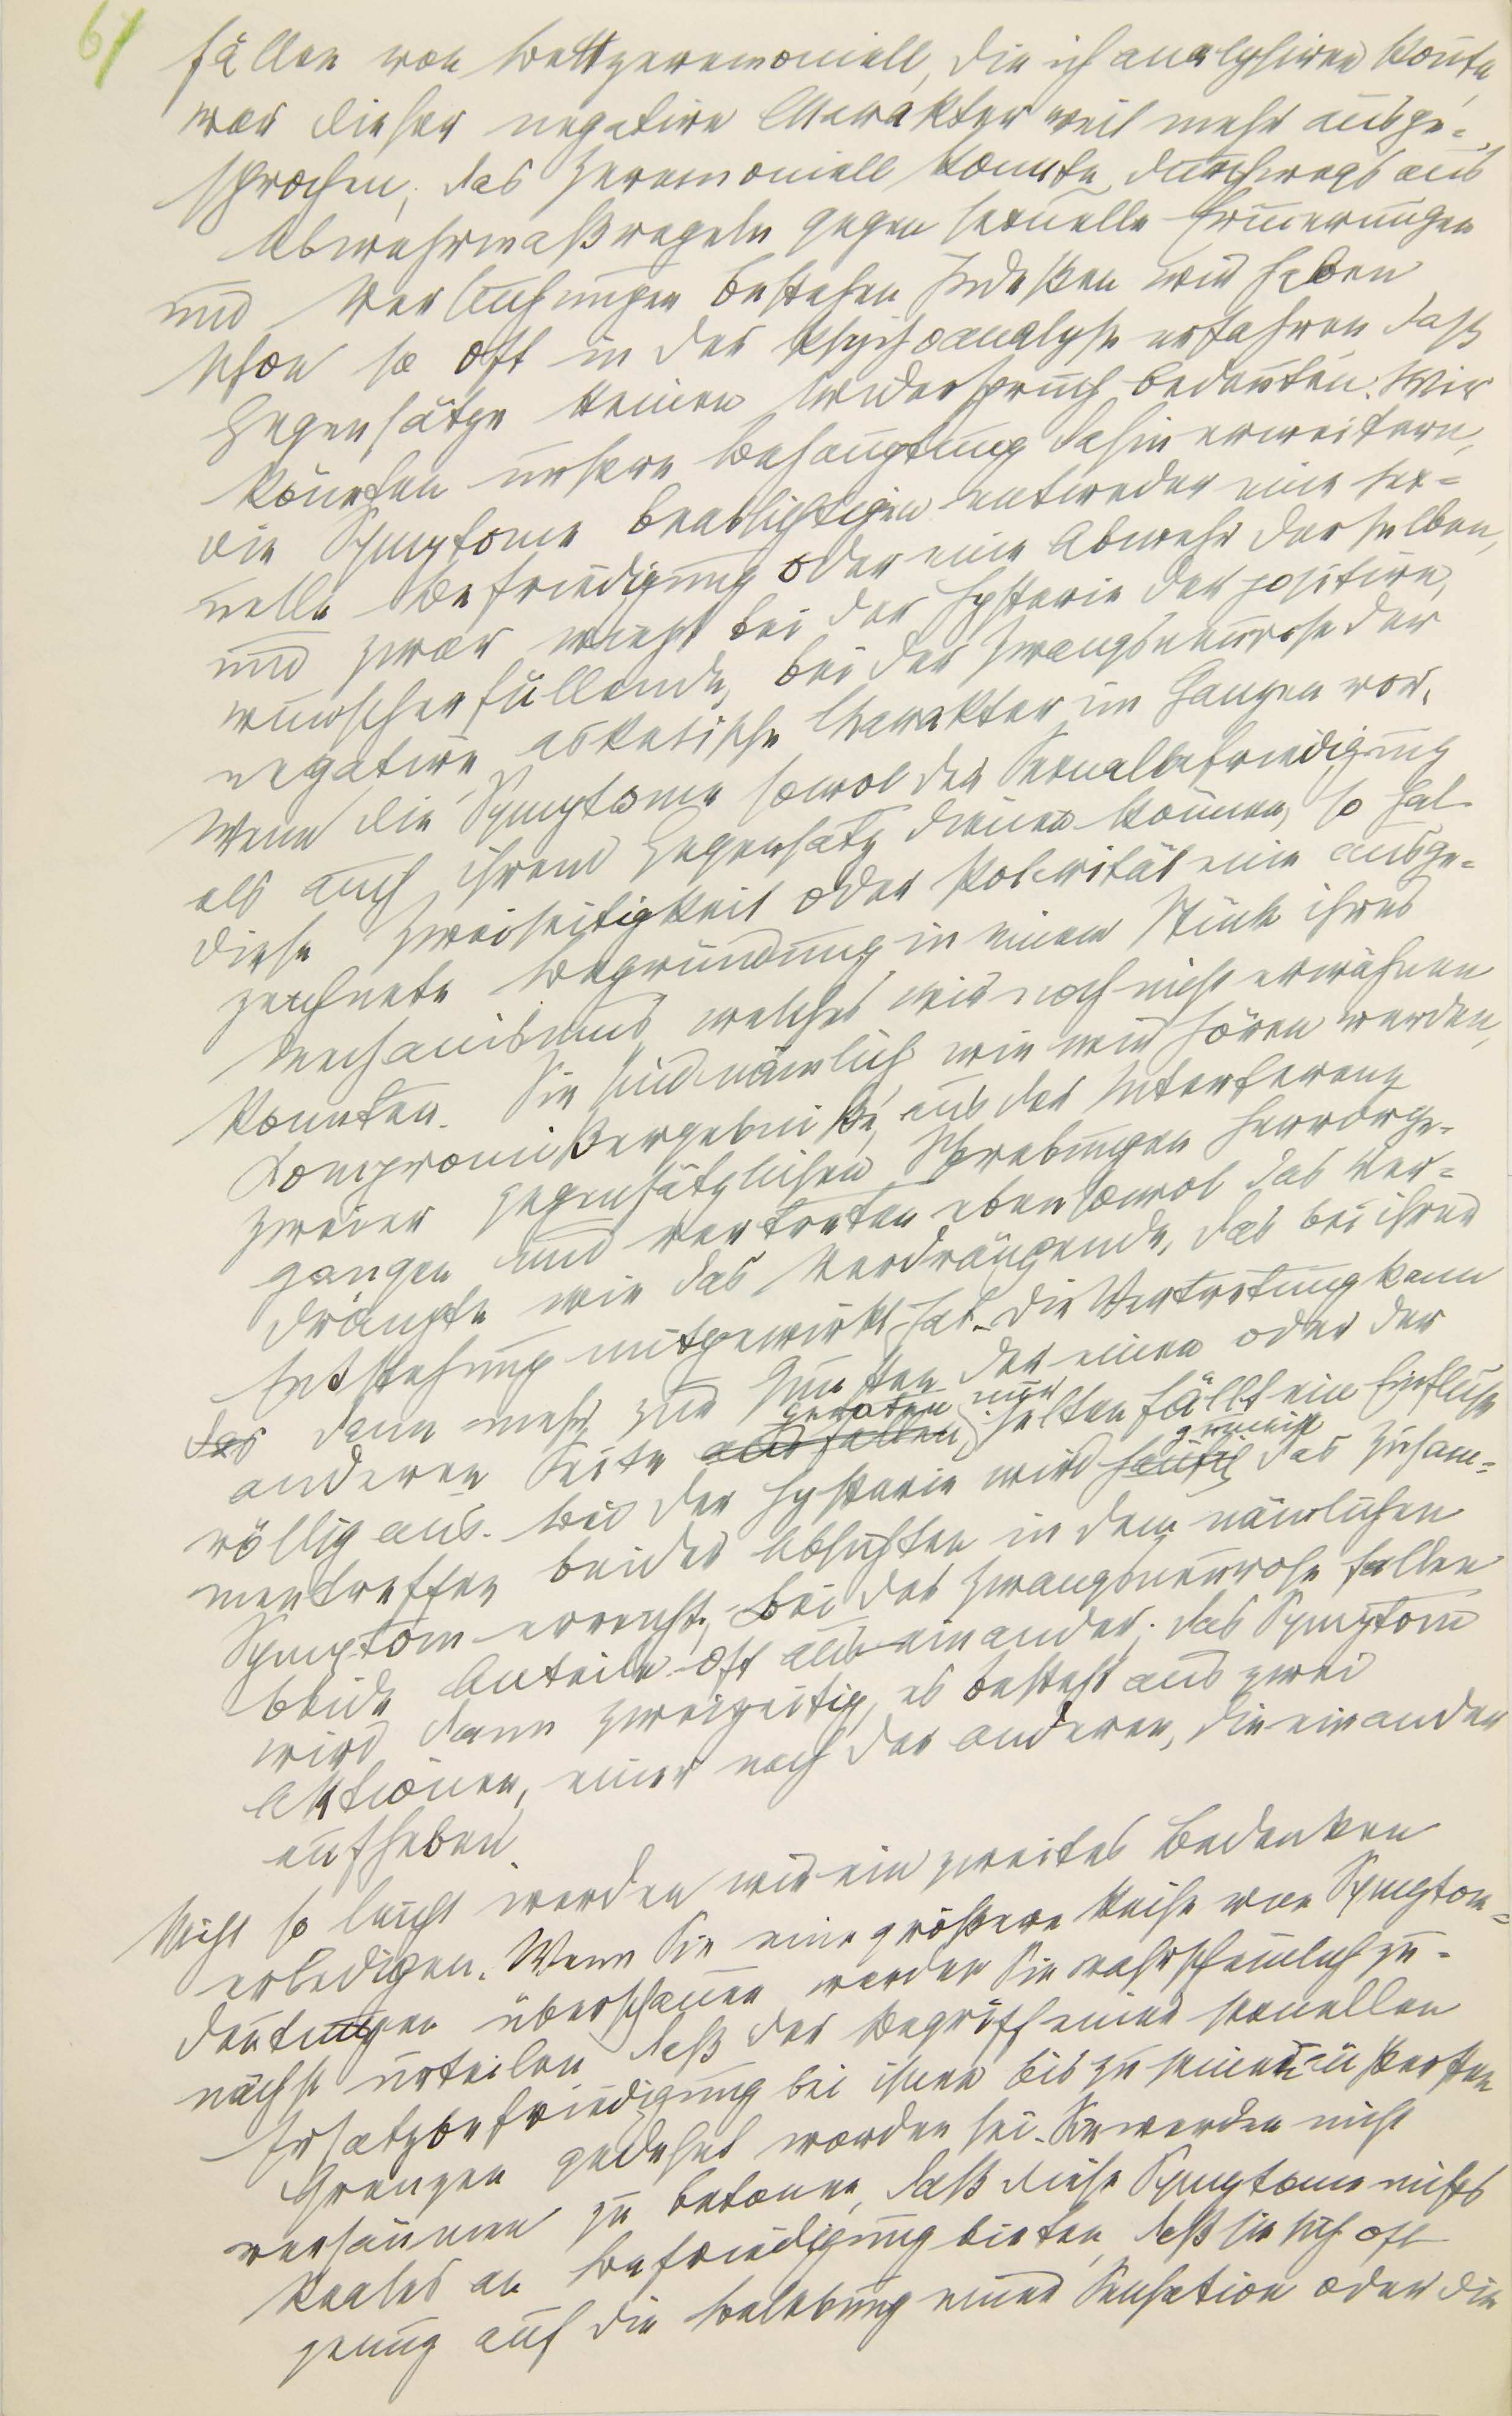 61
Fällen von Bettzeremoniell, die ich analysiren konnte
war dieser negative Charakter weit mehr ausge=
sprochen; das Zeremoniell konnte durchwegs aus
Abwehrmaßregeln gegen sexuelle Erinnerungen
und Versuchungen bestehen Indeßen wir haben
schon so oft in der Psychoanalyse erfahren daß
Gegensätze keinen Widerspruch bedeuten. Wir
könnten unsere Behauptung dahin erweitern,
die Symptome beabsichtigen entweder eine sex=
uelle Befriedigung oder eine Abwehr derselben,
und zwar wiegt bei der Hysterie der positive,
wunscherfüllende, bei der Zwangsneurose der
negative, asketische Charakter im Ganzen vor.
Wenn die Symptome sowol der Sexualbefriedigung
als auch ihrem Gegensatz dienen können, so hat
diese Zweiseitigkeit oder Polarität eine ausge=
zeichnete Begründung in einem Stück ihres
Mechanismus, welches wir noch nicht erwähnen
konnten. Sie sind nämlich wie wir hören werden,
Kompromißergebniße, aus der Interferenz
zweier gegensätzlichen Strebungen hervorge=
gangen und vertreten ebensowol das Ver=
drängte wie das Verdrängende, das bei ihrer
Entstehung mitgewirkt hat. Die Vertretung kann
das dann mehr zu Gunsten der einen oder der
anderen Seite ausfallen, geraten nur selten fällt ein Einfluß
völlig aus. Bei der Hysterie wird häufig gemeist das Zusam=
mentreffen beider Absichten in dem nämlichen
Symptom erreicht, bei der Zwangsneurose fallen
beide Anteile oft auseinander; das Symptom
wird dann zweizeitig, es besteht aus zwei
Aktionen, einer nach der anderen, die einander
aufheben.
Nicht so leicht werden wir ein zweites Bedenken
erledigen. Wenn Sie eine größere Reihe von Symptom=
deutungen überschauen werden Sie wahrscheinlich zu=
nächst urteilen daß der Begriff einer sexuellen
Ersatzbefriedigung bei ihnen bis zu seinen äußersten
Grenzen gedehnt worden sei. Sie werden nicht
versäumen zu betonen, daß diese Symptome nichts
Reales an Befriedigung bieten, daß sie sich oft
genug auf die Belebung einer Sensation oder die